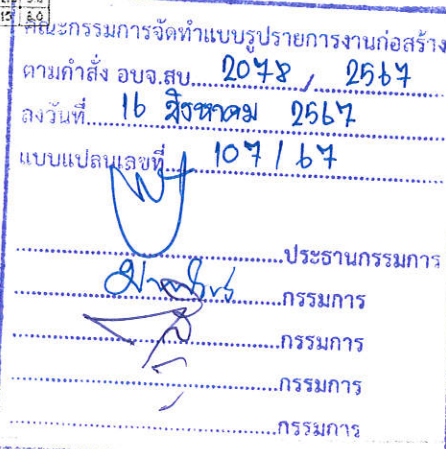 คณะกรรมการจัดทำแบบรูปรายการงานก่อสร้าง
ตามคำสั่ง อบจ.สบ. 2078 / 2567
ลงวันที่ 16 สิงหาคม 2567
แบบแปลนเลขที่ 107 / 67
ประธานกรรมการ
กรรมการ
กรรมการ
กรรมการ
กรรมการ